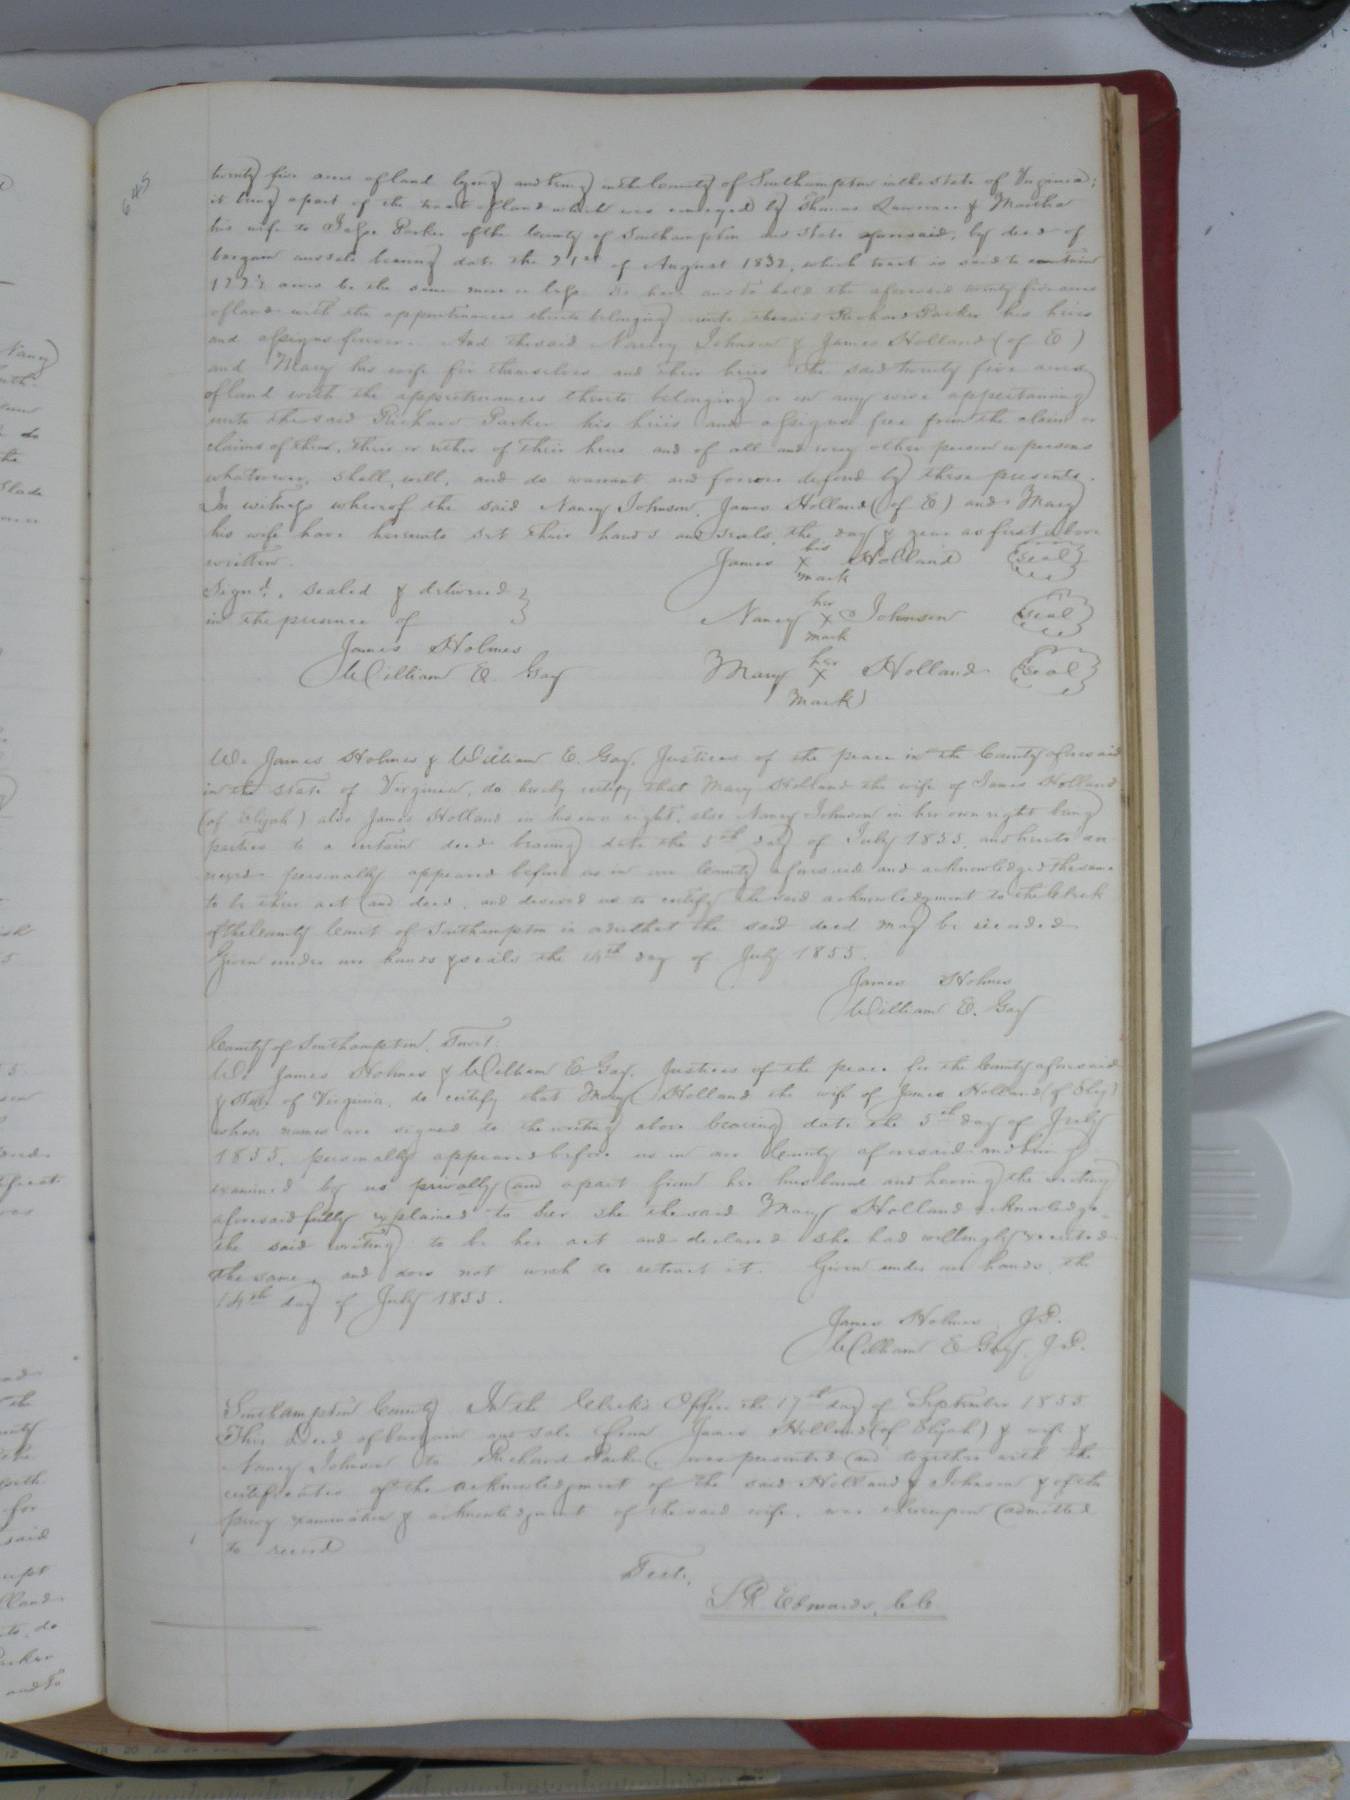 645
twenty five acres of land lying and being in the County of Southampton in the State of Virginia;
it being a part of the tract of land which was conveyed by Thomas Lawrence & Martha
his wife to Parker of the County of Southampton and State aforesaid, by deed of
bargain and sale bearing date the 21st of August 1832, which tract is said to contain
acres be the same more or less. To have and to hold the aforesaid twenty five acres
of land with the appurtenances thereto belonging unto the said Richard Parker his heirs
and assigns forever. And the said Nancy Johnson & James Holland (of E)
and Mary his wife for themselves and their heirs the said twenty five acres
of land with the appurtenances thereto belonging or in any wise appertaining
unto the said Richard Parker his heirs and assigns free from the claim or
claims of them, their or either of their heirs and of all and every other person or persons
whatsoever, shall, will, and do warrant and forever defend by these presents.
In witness whereof the said Nancy Johnson, James Holland (of E) and Mary
his wife have hereunto set their hands and seals, the day & year as first above
written.
James his X mark Holland (seal)
Signd, sealed & delivered }
in the presence of }
Nancy her X mark Johnson (seal)
James Holmes
William E. Gay
Mary her X mark Holland (seal)
We James Holmes & William E. Gay, Justices of the peace in the County aforesaid
in the State of Virginia, do hereby certify that Mary Holland the wife of James Holland
(of Elijah) also James Holland in his own right, also Nancy Johnson in her own right being
parties to a certain deed bearing date the 5th day of July 1855, and hereto an
nexed personally appeared before us in our County aforesaid and acknowledged the same
to be their act and deed, and desired us to certify the said acknowledgment to the Clerk
of the County Court of Southampton in order that the said deed may be recorded
Given under our hands & seals the 14th day of July 1855.
James Holmes
William E. Gay
County of Southampton, Towit:
We James Holmes & William E Gay, Justices of the peace for the County aforesaid
& State of Virginia, do certify that Mary Holland the wife of James Holland (of Elij)
whose names are signed to the writing above bearing date the 5th day of July
1855, personally appeared before us in our County aforesaid and being
examined by us privally and apart from her husband and having the writing
aforesaid fully explained to her she the said Mary Holland acknowledge
the said writing to be her act and declared she had willingly executed
the same, and does not wish to retract it. Given under our hands the
14th day of July 1855.
James Holmes, J.P.
William E Gay, J.P.
Southampton County In the Clerk's Office the 17th day of September 1855
This Deed of bargain and sale from James Holland (of Elijah) & wife &
Nancy Johnson to Richard Parker, was presented and together with the
certificates of the acknowledgment of the said Holland & Johnson & of the
privy examination & acknowledgment of the said wife, was thereupon admitted
to record
Teste,
LR Edwards, C.C.